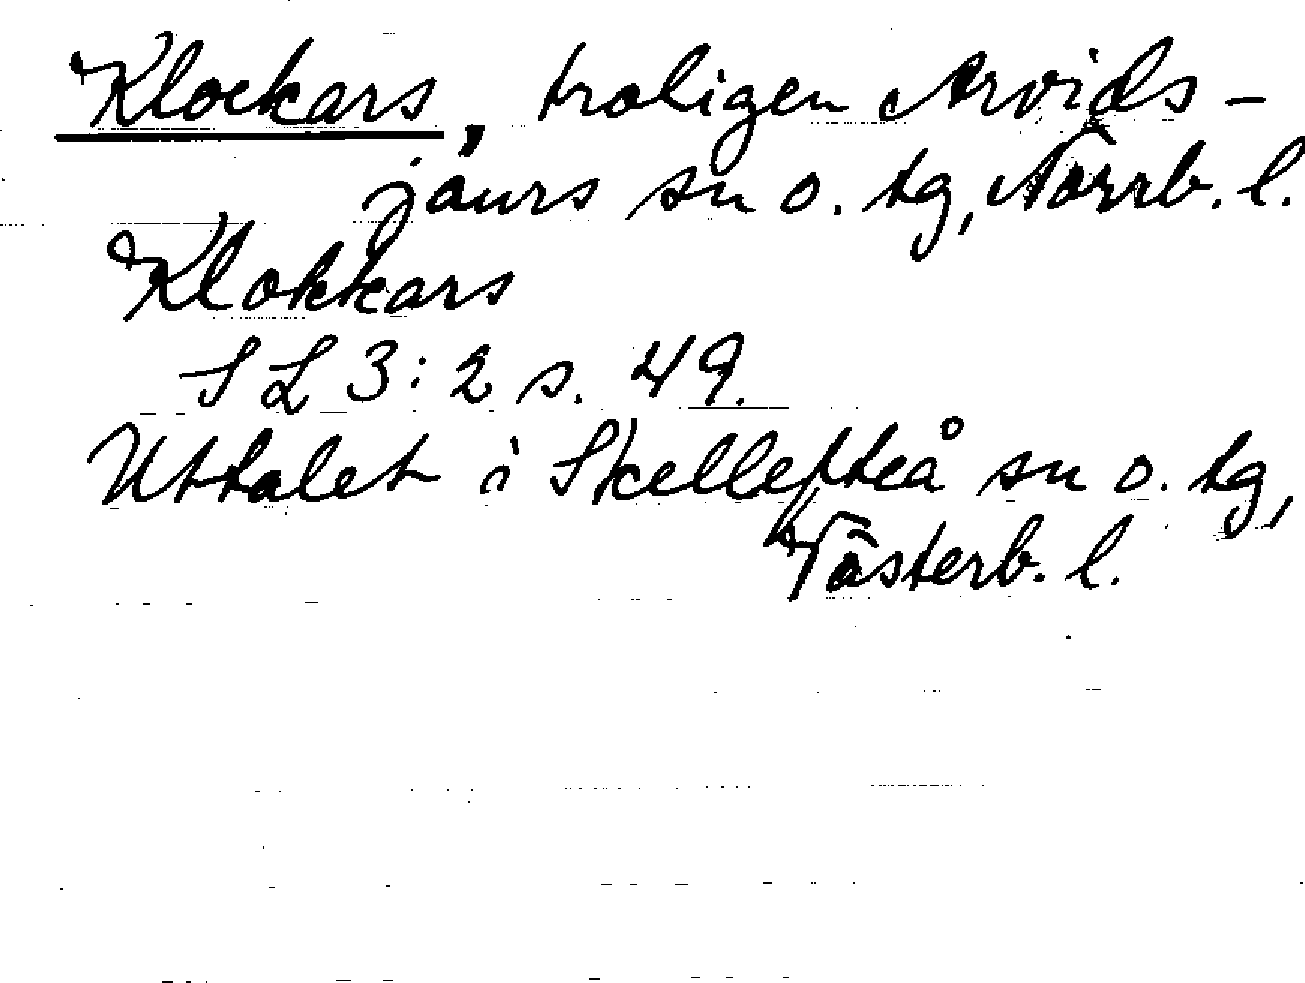 Klockars, troligen Arvids-
jaurs sn o. tg, Norrb. l.
Klokkars
SL 3:2 s. 49.
Uttalet i Skellefteå sn o. tg,
Västerb. l.